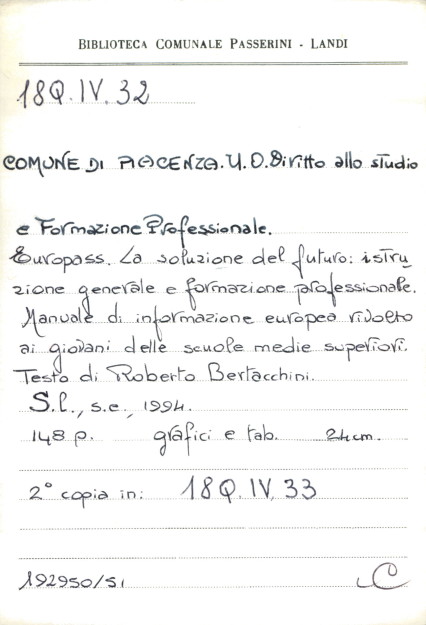 BIBLIOTECA COMUNALE PASSERINI - LANDI
18Q.IV.32
COMUNE DI PIACENZA. U.O. Diritto allo studio
e Formazione Professionale.
Europass. La soluzione del futuro: istru
zione generale e formazione professionale.
Manuale di informazione europea rivolto
ai giovani delle scuole medie superiori.
Testo di Roberto Bertacchini.
S.l., s.e., 1994.
148 p. grafici e tab. 24cm.
2° copia in: 18Q.IV.33
192950/51
C